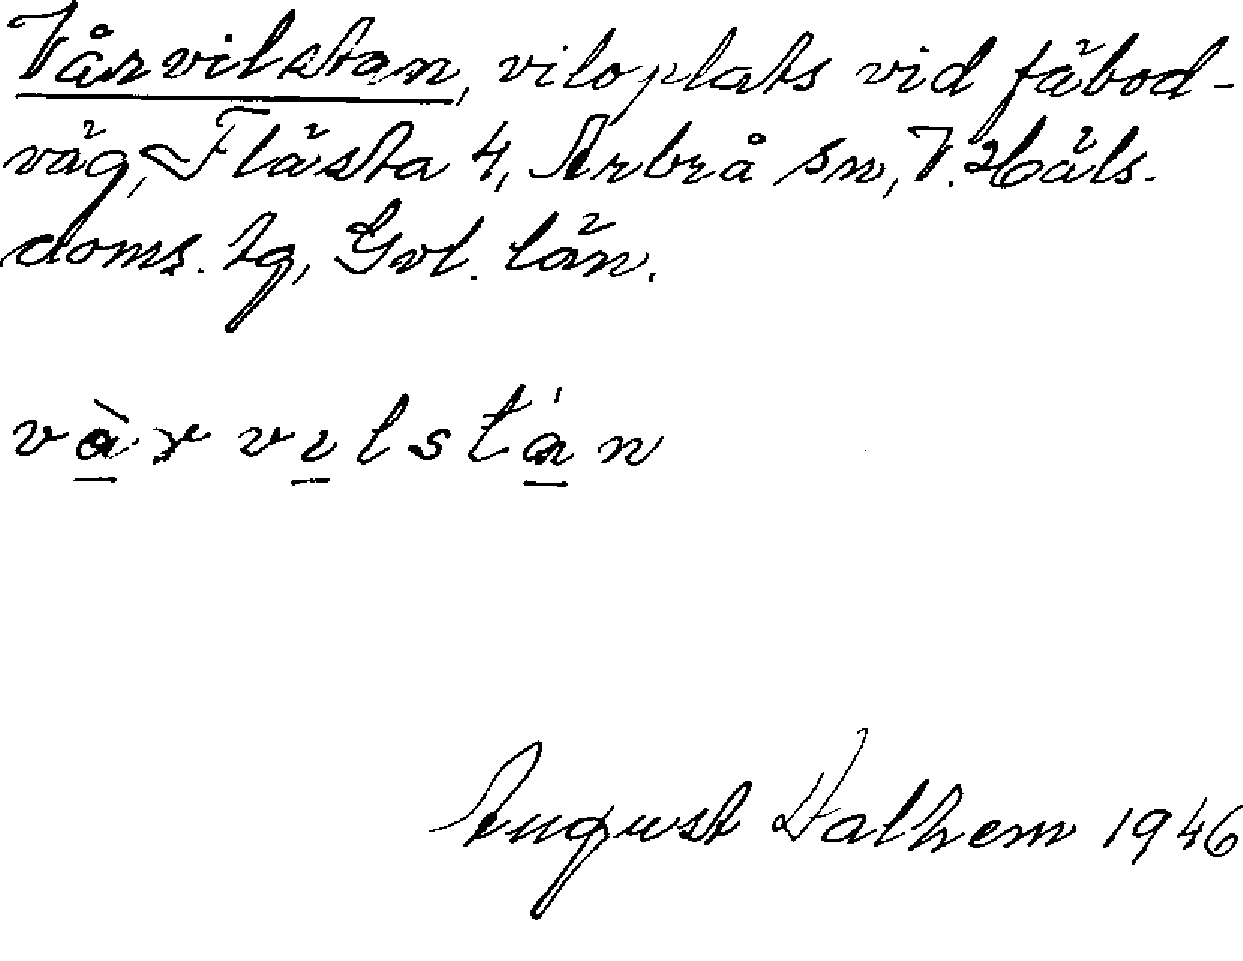 Vårvilstan, viloplats vid fäbod-
väg, Flästa 4, Arbrå sn, V. Häls.
doms. tg, Gvl. län.
vàr vilstán
August Valhem 1946